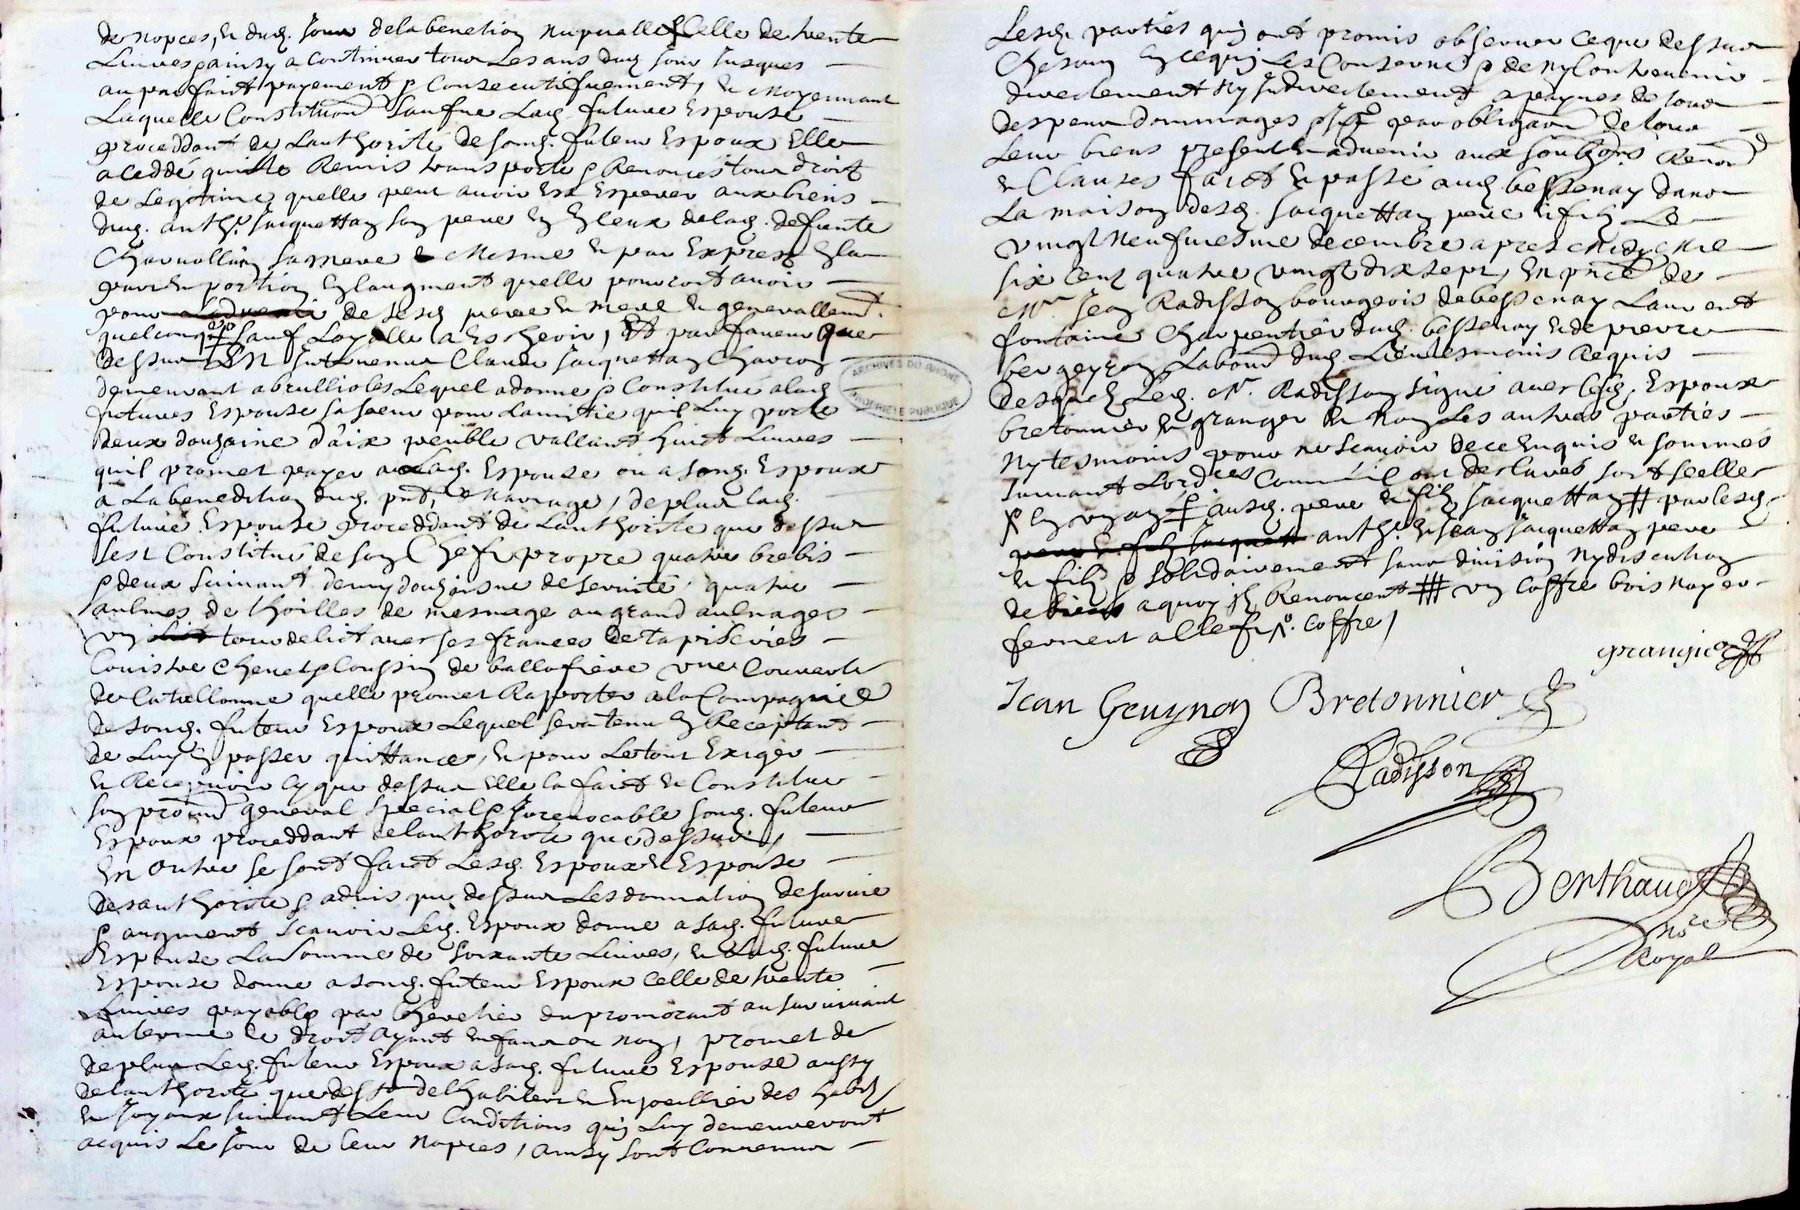 de nopces, et dud. jour de la benetion nuptualle celle de trente
Livres & ainsy a continuer tous Les ans dud jour jusques
au parfaict payement & Consecutifvement, et moyennant
Laquelle Constitution Lad. future Espouse
proceddant de Lauthorité de sond. futeur Espoux Elle
a ceddé quitté Remis transporté & Renonce tous droit
de Legitime quelle peut avoir Et Esperer aux biens
dud. anthe. Jacquettan son pere et en Ceux de lad. defunte
Charvallin sa mere & mesme et par Exprex En la
part et portion En laugment quelle pourroit avoir
pour de sesd. pere et mere et generallemt.
quelconq sauf Loyalle Escheoir, par faveur que
dessus Et En Intervenu Claude Jacquettan Charron
demeurant a brullioles Lequel a donne & Constitue a lad
future Espouse sa soeur pour Lamitié quil Luy porte
deux douzaine d'aix peuble vallant huict Livres
quil promet payer a Lad. Espouse ou a sond. Espoux
a La benediction dud. pnt mariage, de plus lad.
future Espouse proceddant de Lauthorité que dessus
sest Constitué de son Chef & propre quatre brebis
& deux suivant demy douzaine de serviete quatre
aulnes de thoilles de mesnage au grand aulnages
un tour de lict avec ses frances de tapisseries
Couistre Chevet & Coussin de ballofiere une Couverte
de Catellonne quelle promet Raporter a la Compagnie
de sond. futeur Espoux Lequel sera tenu En Receptant
de Luy En passer quittance, et pour Le tout Exiger
et Recepvoir Cy que dessus Elle la faict et Constitue
son procur general special & Irrevocable sond. futeur
Espoux proceddant de lauthorité que dessus,
En Outre se sont faict Lesd. Espoux et Espouse
de sauthorité & advis que dessus Les donnation de survie
& augment scavoir Led. Espoux donne a sad. future
Espouse La somme de soixante Livres, et Lad. future
Espouse donne a sond. futeur Espoux Celle de trente
Livres payable par Lheretier du premorant au survivant
au terme de droit ayant enfans ou non, promet de
de plus Led. futeur Espoux a sad. future Espouse aussy
de lauthorité que dessus de habiller et Enjoeillier des habits
et Joyaux suivant Leur Conditions quy Luy demeureront
acquis Le jour de leur nopces, ainsy sont Convenus
Lesd. parties quy ont promis observer ce que dessus
Chescun En ce quy Les Conserne & de ny Contrevenir
directement ny Indirectement a paynes de tous
despens dommages par obligaon de tous
Leur biens present et advenir aux Renon
et Clauses faict et passé aud. bessenay dans
La maison desd. Jacquettan pere et filz Le
vingt neufviesme decembre apres midy mil
six cent quatre vingt dix sept, En pnce de
Mr. Jean Radisson bourgeois de bessenay Laurent
fontaine Charpentier dud. bessenay et de pierre
bergeyron Labour dud. Lieu tesmoins Requis
desquels Led. Mr. Radisson signé avec lesd. Espoux
bretonnier et granger et non Les autres parties
ny tesmoins pour ne scavoir de ce Enquis et sommés
suivant Lord Comm'il ont declarés soit scellé
ausd. pere et filz Jacquettan # par lesd.
pere et filz Jacquett anthe. et Jean Jacquettan pere
et filz & sollidairement sans division ny discution
de biens a quoy ils Renoncent ## un coffre bois noyer
ferment a clef. Coffre,
grangier
Jean Gruynon Bretonnier
Radisson
Berthaud
nore
Royal
ARCHIVES DU RHONE
PROPRIETE PUBLIQUE